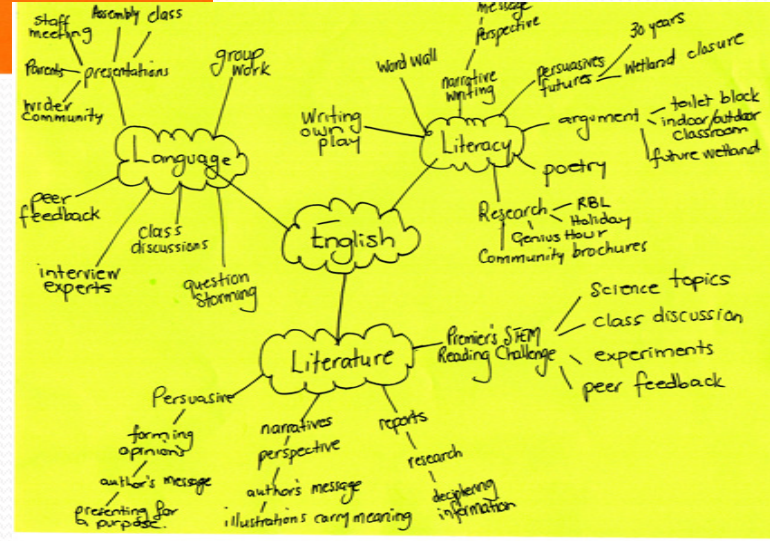 staff
meeting
Assembly
class
Parents
presentations
wider
community
group
work
Language
peer
feedback
interview
experts
class
discussions
question
storming
English
Word Wall
Writing
own
play
message
perspective
narrative
writing
Literacy
persuasives
futures
30 years
Wetland closure
argument
toilet block
indoor/outdoor
classroom
future wetland
poetry
Research
RBL
Holiday
Genius Hour
Community brochures
Literature
Premier's STEM
Reading Challenge
Science topics
class discussion
experiments
peer feedback
Persuasive
forming
opinions
author's message
presenting for
a purpose.
narratives
perspective
author's message
illustrations carry meaning
reports
research
deciphering
information